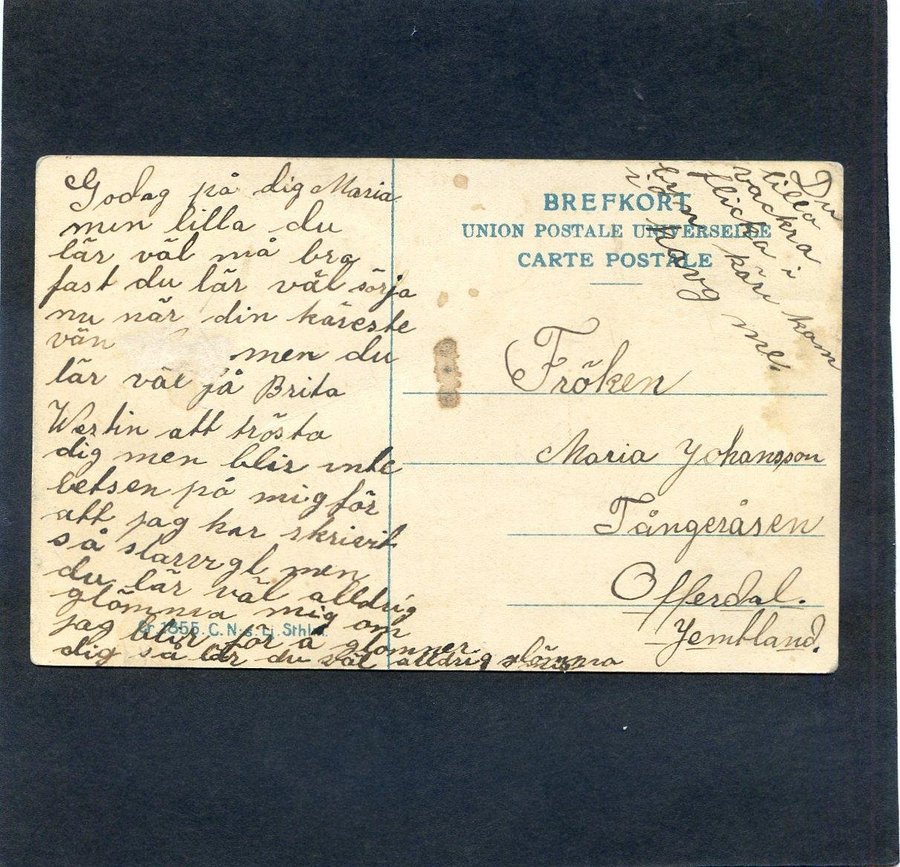 Godag på dig Maria
men lilla du
lär väl må bra
fast du lär väl sörja
nu när din käreste
vän men du
lär väl få Brita
Westin att trösta
dig men blir inte
betsen på mig för
att jag har skrievt
så slarvgt men
du lär väl alldrig
glömma mig om
jag blir för a glömmer
dig så lär du väl alldrig glömma
1855. C. N:s Lj. Sthlm.
BREFKORT
UNION POSTALE UNIVERSELLE
CARTE POSTALE
Du
lilla
vackra
flicka i
kom
Fröken
Maria Johansson
Tångeråsen
Offerdal.
Jemtland.